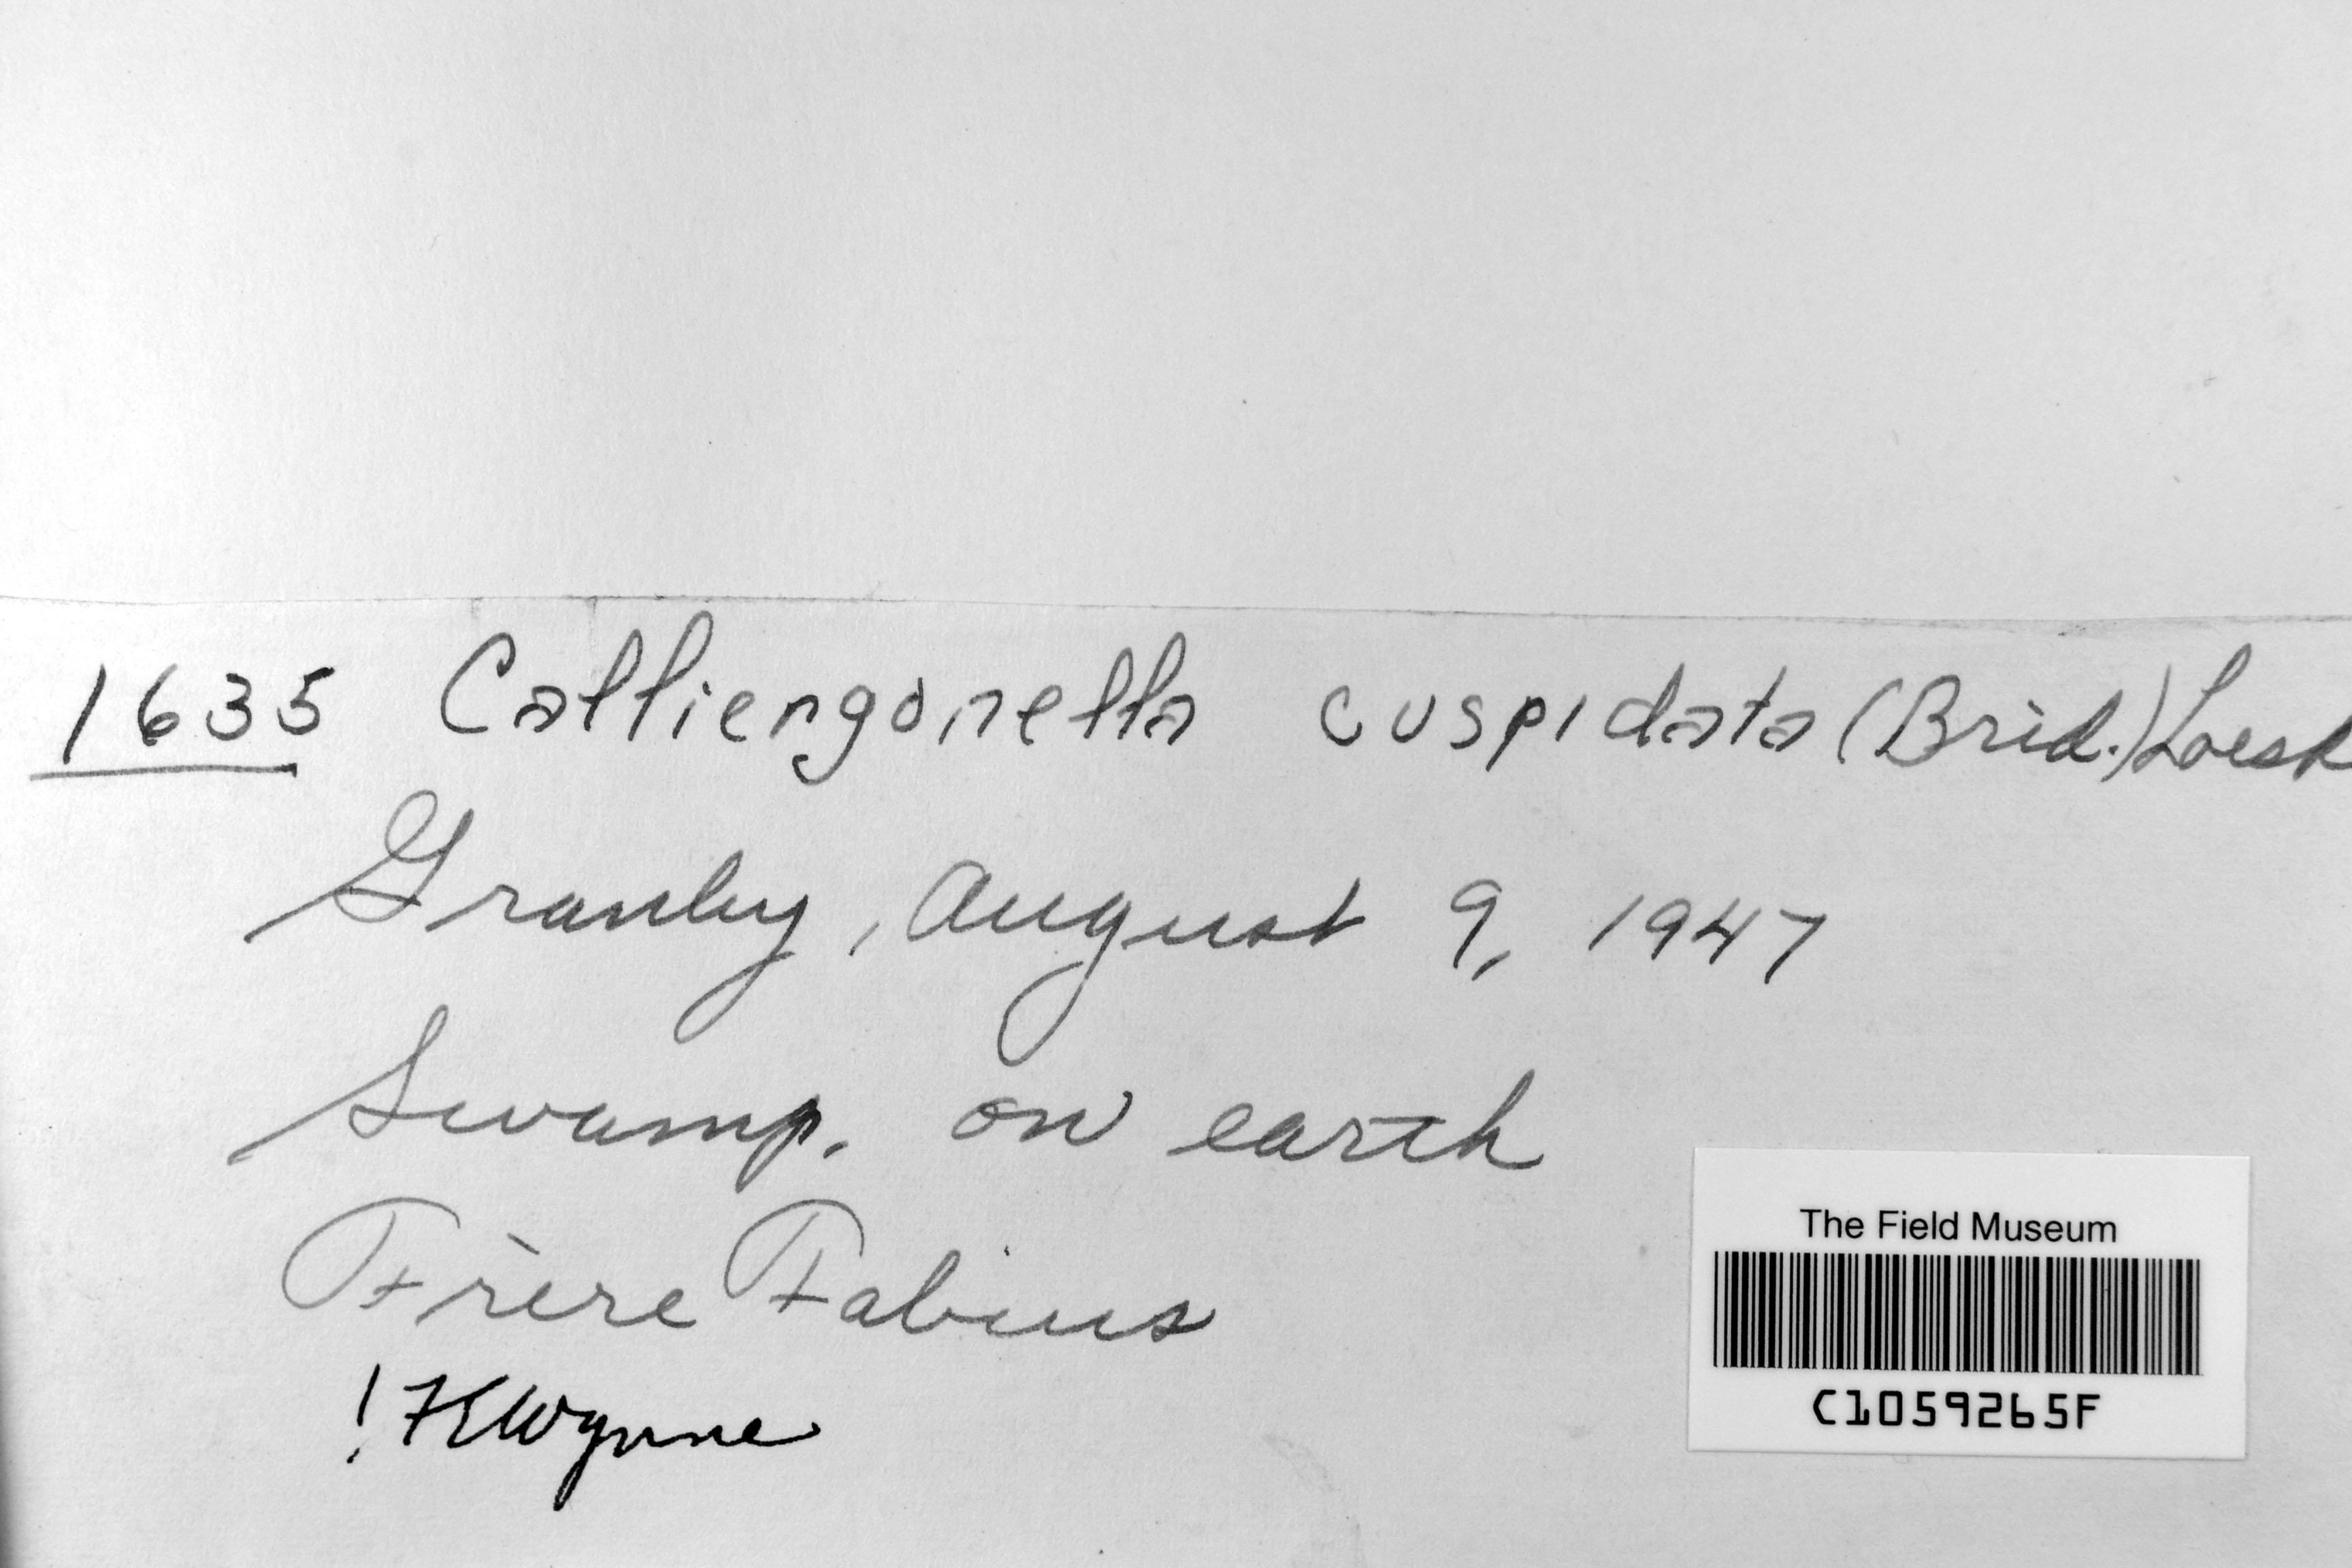 1635 Calliergonella cuspidata (Brid.) Loesk
Granby, August 9, 1947
Swamp, on earth
Frère Fabius
! FEWynne
The Field Museum
C1059265F